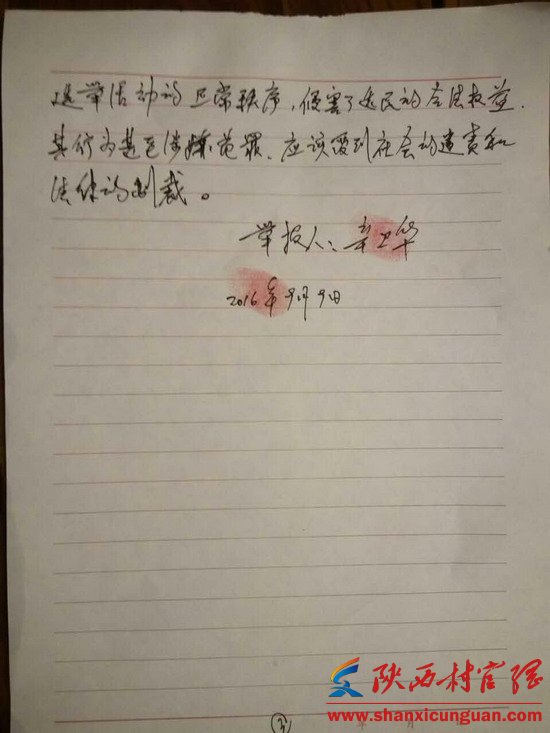 选举活动的正常秩序,侵害了选民的合法权益.
其行为甚至涉嫌犯罪、应该受到社会的谴责和
法律的制裁。
举报人:辛卫华
2016年9月9日
陕西村官网
www.shanxicunguan.com
年 月
3